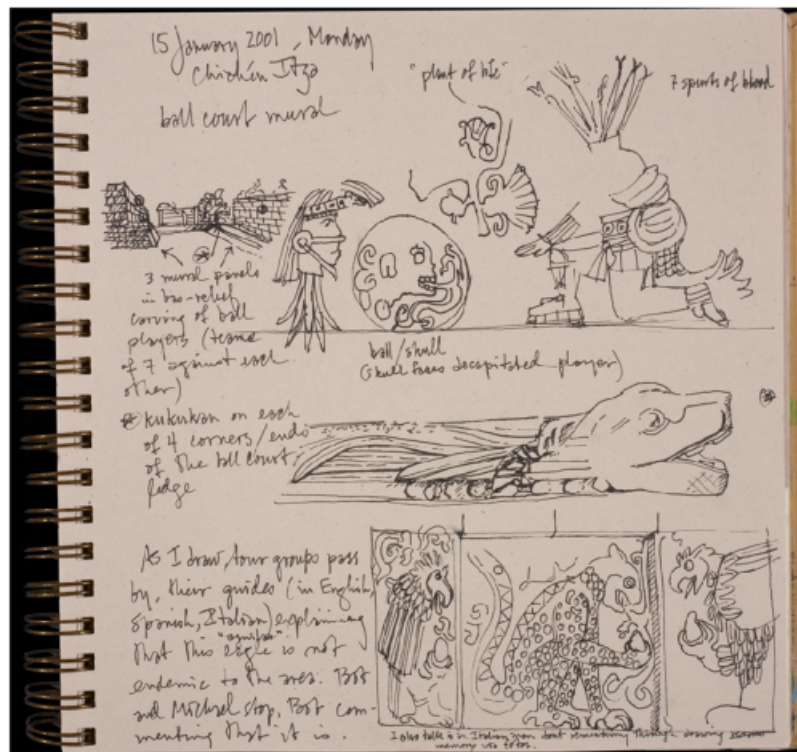 15 January 2001, Monday
Chichén Itza
ball court mural
"plant of life"
7 spurts of blood
3 mural panels
in bas-relief
carving of ball
players (teams
of 7 against each
other)
ball/skull
(skull faces decapitated player)
kukulkan on each
of 4 corners/ends
of the ball court
ledge
As I draw tour groups pass
by, their guides (in English,
Spanish, Italian) explaining
that this eagle is not
endemic to the area. Bot
and Michael stop, Bot com-
menting that it is.
I also talk in Italian about remembering through drawing
memory